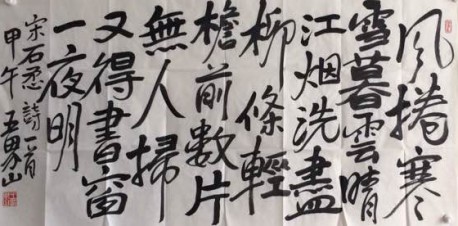 風捲寒
雪暮雲晴
江烟洗盡
柳條輕
檐前數片
無人掃
又得書窗
一夜明
宋石 詩
甲午 山